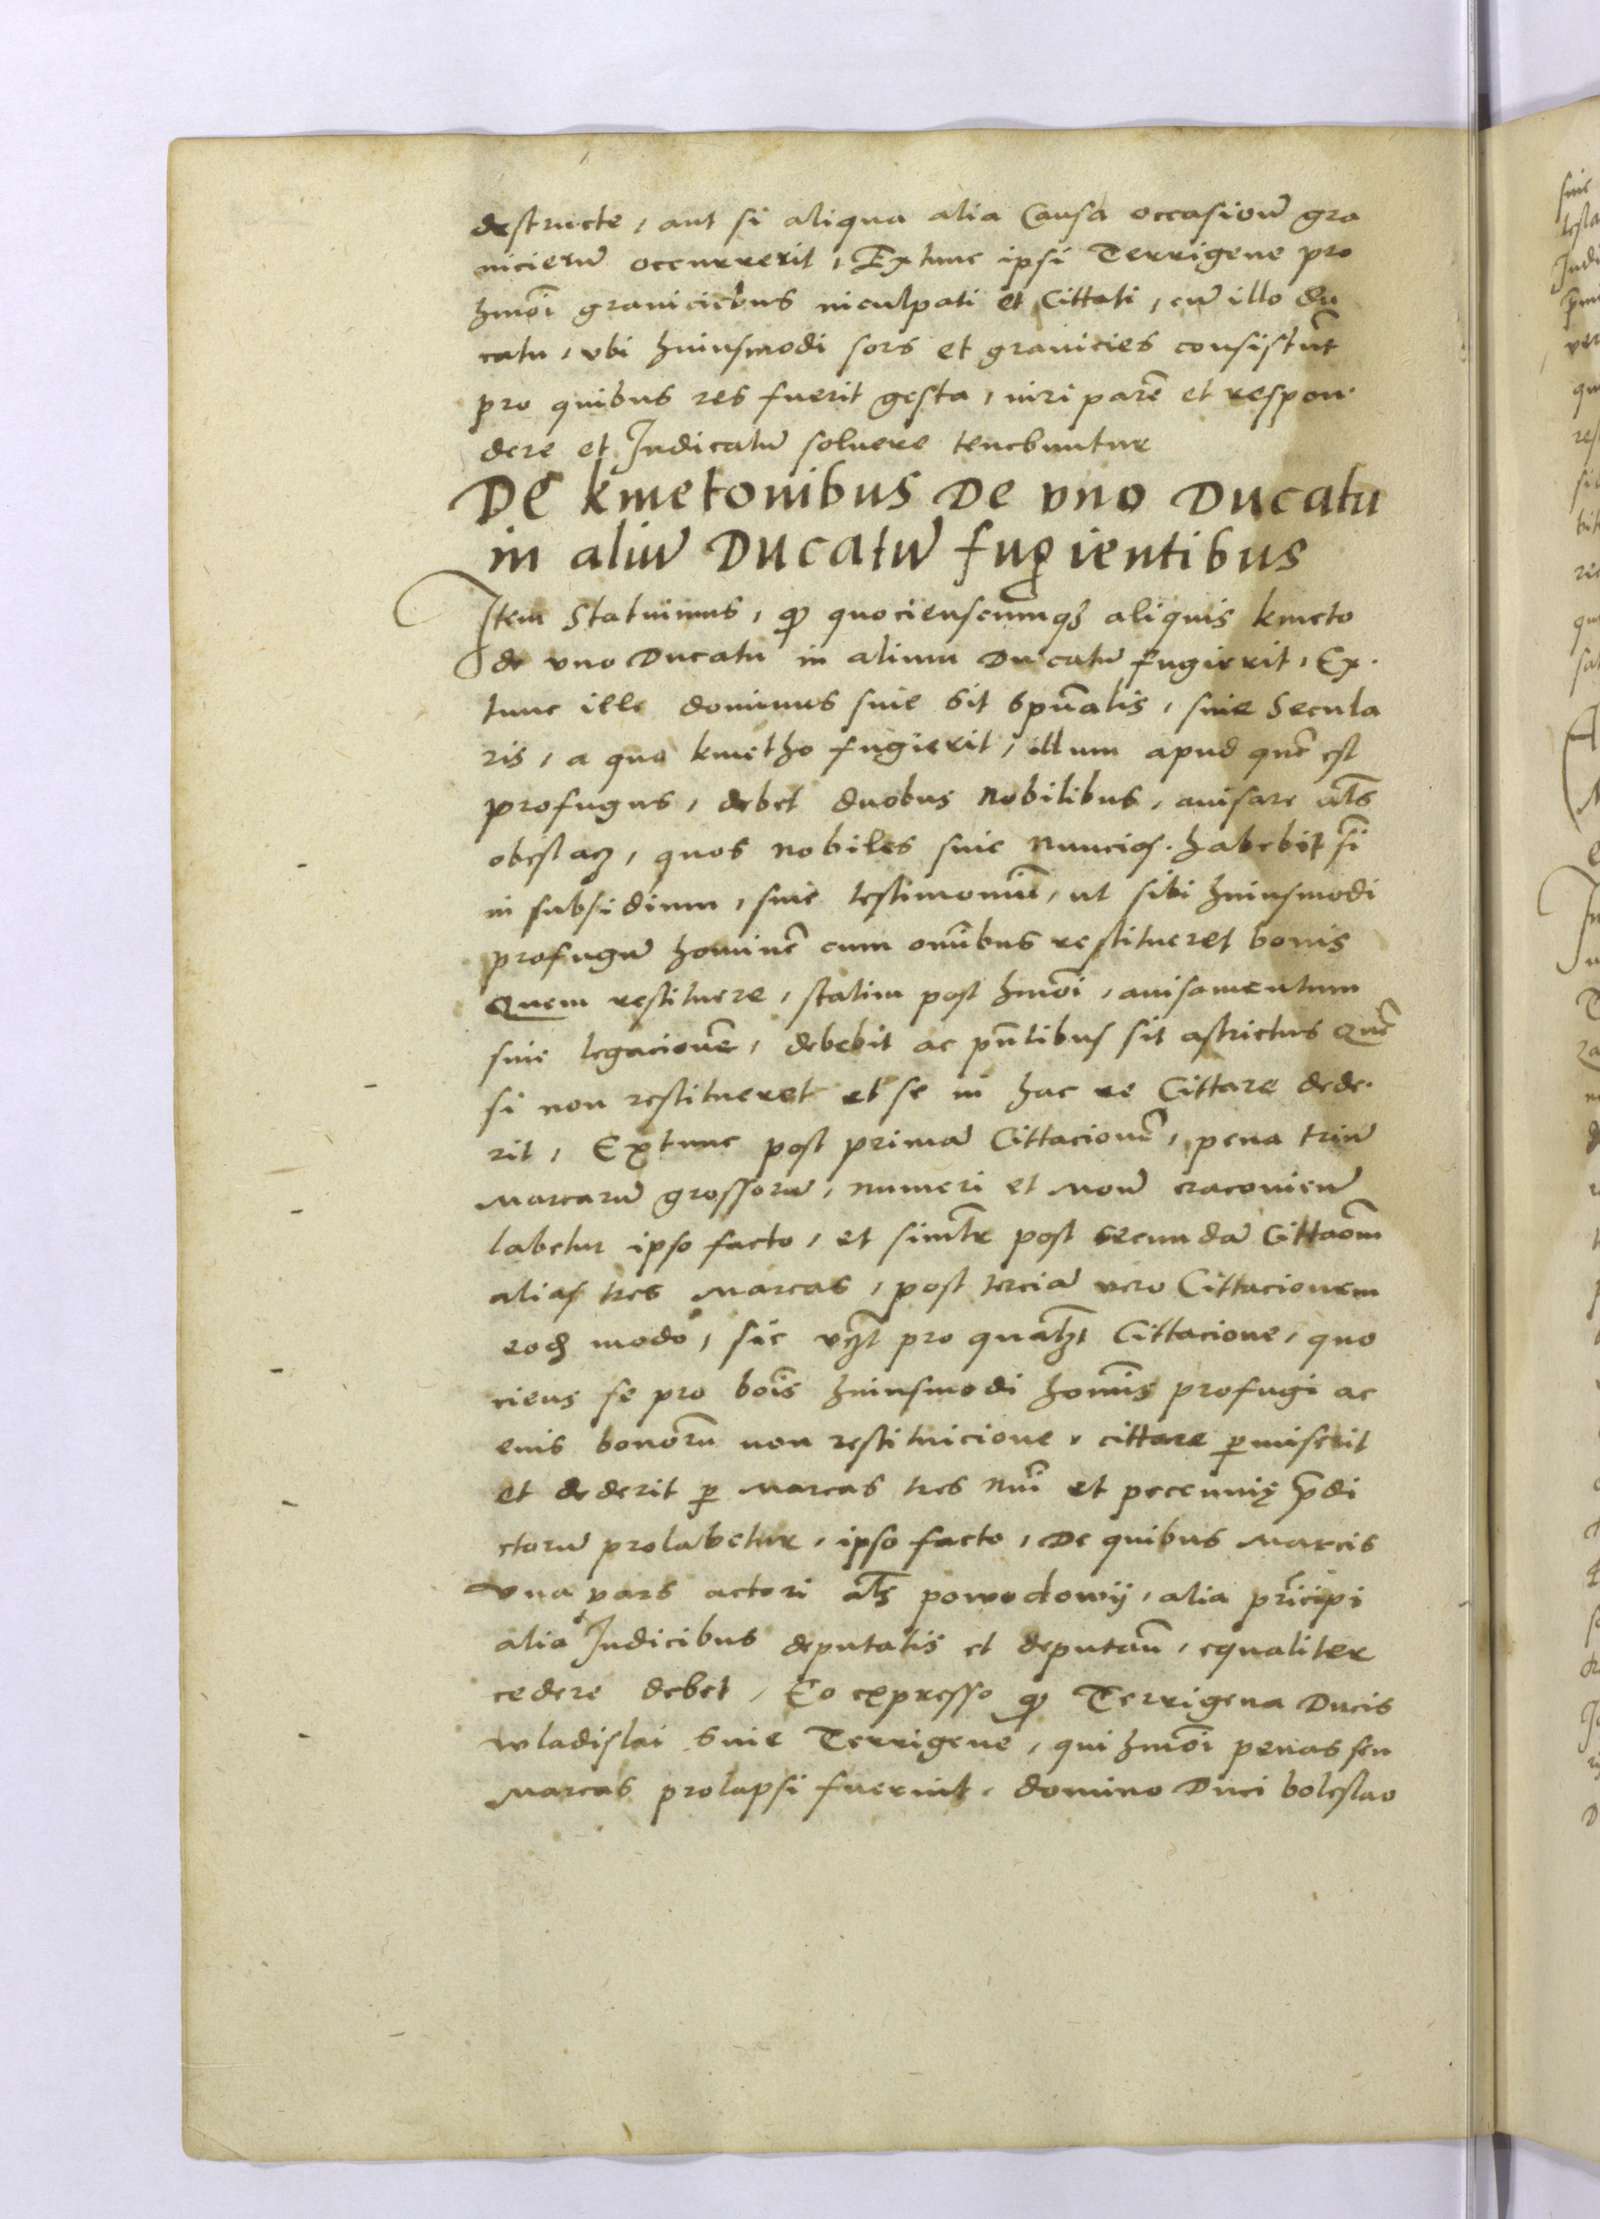 destructe, aut si aliqua alia Causa occasioū gra
nicierū occurrerit, Extunc ipsi Terrigene pro
hmōi graniciebus inculpati et Cittati, cū illo du
catu, vbi huiusmodi sors et granicies consistūt
pro quibus res fuerit gesta, iuri parē et respon
dere et Iudicatū soluere tenebuntur
DE kmetonibus DE vno Ducatu
in aliū Ducatū fugientibus
Item Statuimus, qꝫ quocienscumqꝫ aliquis kmeto
de vno Ducatu in alium Ducatū fugierit, Ex
tunc ille dominus siue sit spūalis, siue Secula
ris, a quo kmetho fugierit, illum apud quē est
profugus, debet duobus Nobilibus, auisare al̄s
obeslacz, quos nobiles siue Nuncios habebit s̄i
in subsidium, siue testimoniū, ut sibi huiusmodi
profugū hominē cum om̄ibus restitueret bonis
Quem restituere, statim post hmōi, auisamentum
siue legacionē, debebit ac pn̄tibus sit astrictus Quē
si non restitueret et se in hac re Cittare dede
rit, Extunc post primā Cittacionē, pena triū
Marcarū grossorū, numeri et Monē cracovien̄
labetur ipso facto, et siml̄r post secundā Cittaōm
alias tres Marcas, post terciā vero Cittacionem
eodꝫ modo, sic vꝫt pro qual̄bꝫt Cittacione, quo
ciens se pro bōis huiusmodi homīs profugi ac
eius bonorū non restituicione, cittare p̱miserit
et dederit p̱ Marcas tres nūi et peccunię p̄di
ctorū prolabetur, ipso facto, De quibus Marcis
vna pars actori al̄s powodowij, alia prīcipi
alia Iudicibus deputatis et deputan̄, equaliter
cedere debet, Eo expresso qꝫ Terrigena Ducis
wladislai siue Terrigene, qui hmōi penas seu
Marcas prolapsi fuerint, domino Duci boleslao